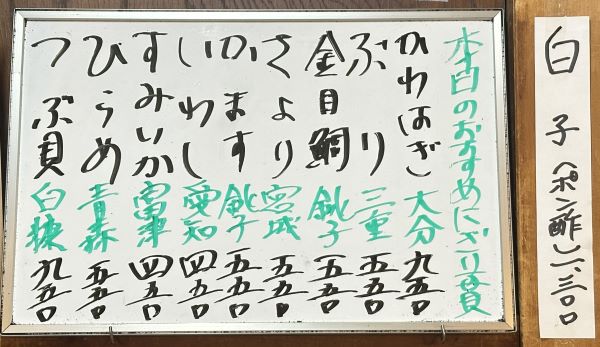 白子(ポン酢)一、三〇〇
本日のおすすめにぎり貫
かわはぎ 大分 九五〇
ぶり 三重 五五〇
金目鯛 銚子 五五〇
さより 宮城 五五〇
かます 銚子 五五〇
いわし 愛知 四五〇
すみいか 富津 四五〇
ひらめ 青森 五五〇
つぶ貝 白糠 九五〇